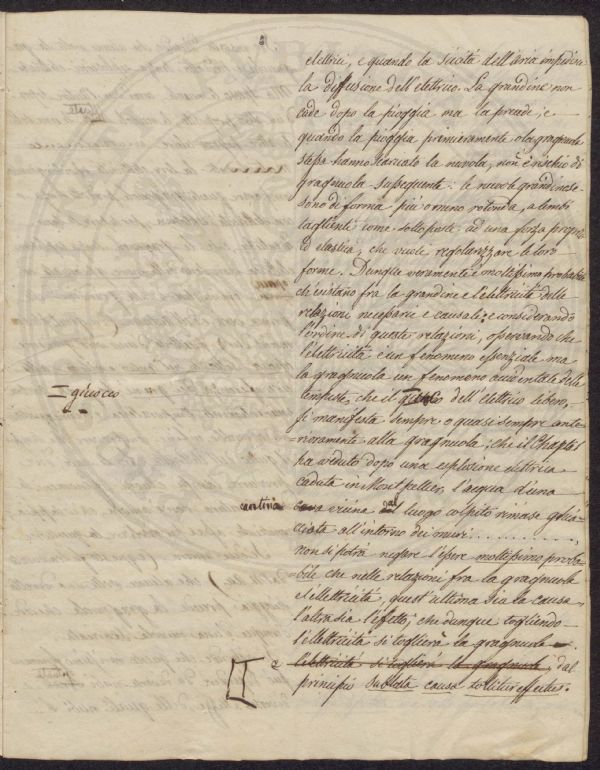 elettrici, e quando la siccità dell'aria impedisce
la diffusione dell'elettrico. La grandine non
cade dopo la pioggia ma la precede; e
quando la pioggia primieramente o la gragnuola
stessa hanno scaricato la nuvola, non è rischio di
gragnuola susseguente: le nuvole grandinose
sono di forma più o meno rotonda, a lembi
taglienti come sottoposte ad una forza propria
ed elastica, che vuole regolarizzare le loro
forme. Dunque veramente è moltissimo probabile
ch'esistano fra la grandine e l'elettricità delle
relazioni necessarie e causali: e considerando
l'ordine di queste relazioni, osservando che
l'elettricità è un fenomeno essenziale ma
la gragnuola un fenomeno accidentale delle
tempeste, che il dell'elettrico libero,
I giuoco
si manifesta sempre o quasi sempre ante-
=riormente alla gragnuola, che il Chaptal
ha veduto dopo una esplosione elettrica
caduta in Montpellier, l'acqua d'una
cantina
vicina dal luogo colpito rimase ghia-
cciata all'intorno dei muri..........
non si potrà negare l'essere moltissimo proba-
=bile che nelle relazioni fra la gragnuola
e l'elettricità, quest'ultima sia la causa
l'altra sia l'effetto; che dunque togliendo
l'elettricità si toglierà la gragnuola
e l'elettricità si toglierà la gragnuola dal
principio sublata causa tollitur effectus.